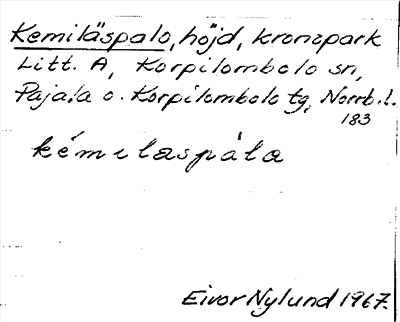 Kemiläspalo, höjd, kronopark
Litt. A, Korpilombolo sn,
Pajala o. Korpilombolo tg, Norrb. l.
183
kémılaspàla
Eivor Nylund 1967.